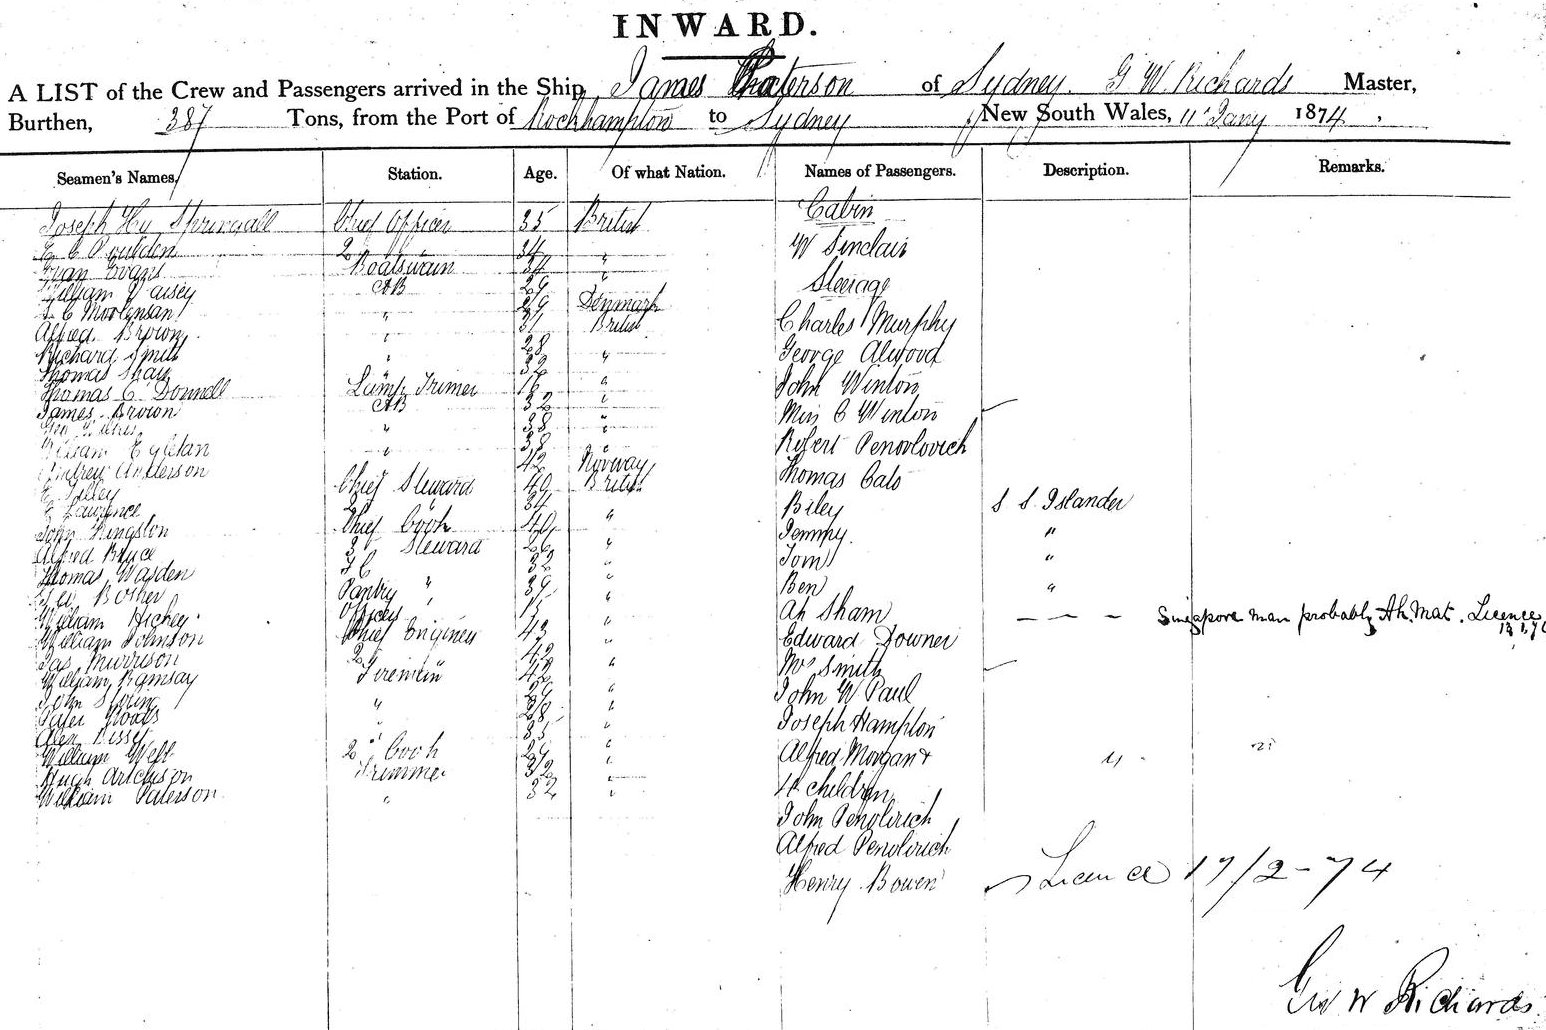 INWARD.
A LIST of the Crew and Passengers arrived in the Ship James Paterson of Sydney. G W Richards Master,
Burthen, 387 Tons, from the Port of Rockhampton to Sydney New South Wales, 11 Jany 1874.
Seamen's Names. Station. Age. Of what Nation. Names of Passengers. Description. Remarks.
Joseph Hy Springall Chief Officer 35 British Cabin
2 34 " W Sinclair
Evan Evans Boatswain 34 "
William AB 29 Steerage
29 Denmark
Alfred Brown " 31 British Charles Murphy
Richard Smith " 28 " George Alwood
Thomas Shaw " 32
Thomas C Donnell Lamp Trimer 18 " John Winton
James Brown AB 32 " Miss C Winton
" 38 "
William " 38 " Robert Penovlovich
Andrew Anderson 42 Norway
E Tilley Chief Steward 40 British Thomas Calo
E Lawrence 2 " 34 Biley S S Islander
John Kingston Chief Cook 40 " Jemmy. "
Alfred Bruce 3 Steward 26 " Tom "
Thomas Warden 32 " Ben "
Pantry " 39 "
William Hickey Officers " 15 " Ah Sham — — — Singapore man probably Ah. Mat. Licence
William Johnson Chief Enginer 43 Edward Downer
Jas Murrison 2 " 42 " Mrs Smith
William Ramsay Firemen 42 " John W Paul
John " 29 "
Peter Woods " 28 " Joseph Hampton
Alex " 35 "
William Webb 2 Cook 29 " Alfred Morgan & "
Hugh Trimmer 32 4 children
William Paterson " 32 "
John Penolvich
Alfred Penolvich
Henry Bowen Licence 17/2-74
Geo W Richards